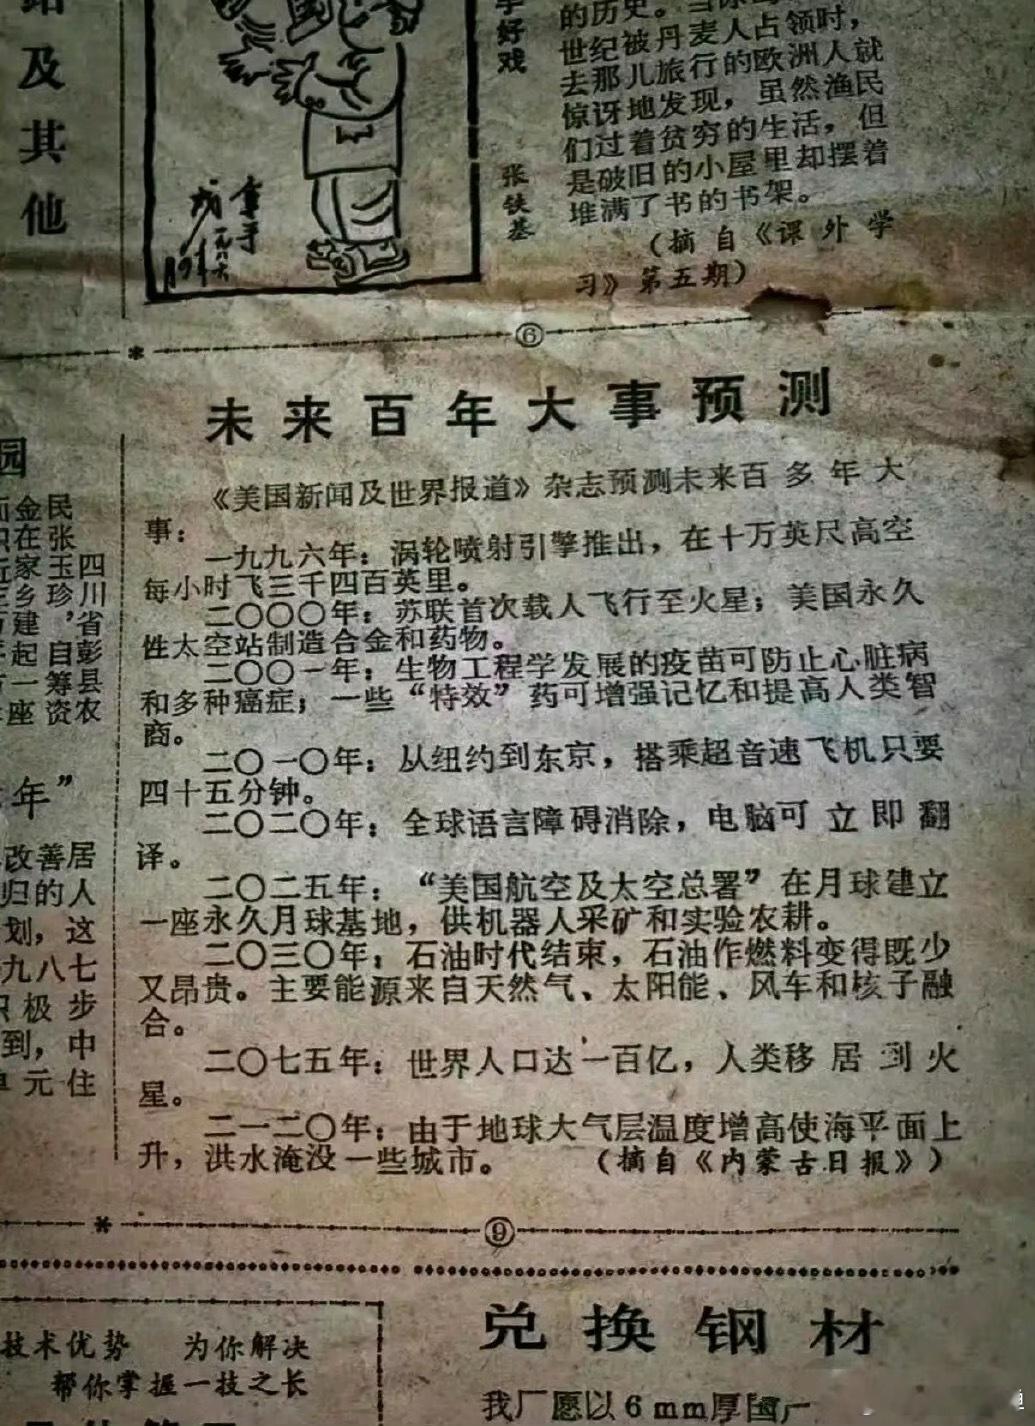 及
其
他
好戏
张铁基
世纪被丹麦人占领时，
去那儿旅行的欧洲人就
惊讶地发现，虽然渔民
们过着贫穷的生活，但
是破旧的小屋里却摆着
堆满了书的书架。
（摘自《课外学
习》第五期）
⑥
未来百年大事预测
《美国新闻及世界报道》杂志预测未来百多年大
事：
一九九六年：涡轮喷射引擎推出，在十万英尺高空
每小时飞三千四百英里。
二〇〇〇年：苏联首次载人飞行至火星；美国永久
性太空站制造合金和药物。
二〇〇一年：生物工程学发展的疫苗可防止心脏病
和多种癌症；一些“特效”药可增强记忆和提高人类智
商。
二〇一〇年：从纽约到东京，搭乘超音速飞机只要
四十五分钟。
二〇二〇年：全球语言障碍消除，电脑可立即翻
译。
二〇二五年：“美国航空及太空总署”在月球建立
一座永久月球基地，供机器人采矿和实验农耕。
二〇三〇年：石油时代结束，石油作燃料变得既少
又昂贵。主要能源来自天然气、太阳能、风车和核子融
合。
二〇七五年：世界人口达一百亿，人类移居到火
星。
二一二〇年：由于地球大气层温度增高使海平面上
升，洪水淹没一些城市。（摘自《内蒙古日报》）
⑨
园
四川省彭县农
民张玉珍，自筹资
金在家乡建起一座
年”
改善居
归的人
划，这
九八七
积极步
到，中
单元住
技术优势 为你解决
帮你掌握一技之长
兑换钢材
我厂愿以6mm厚国产